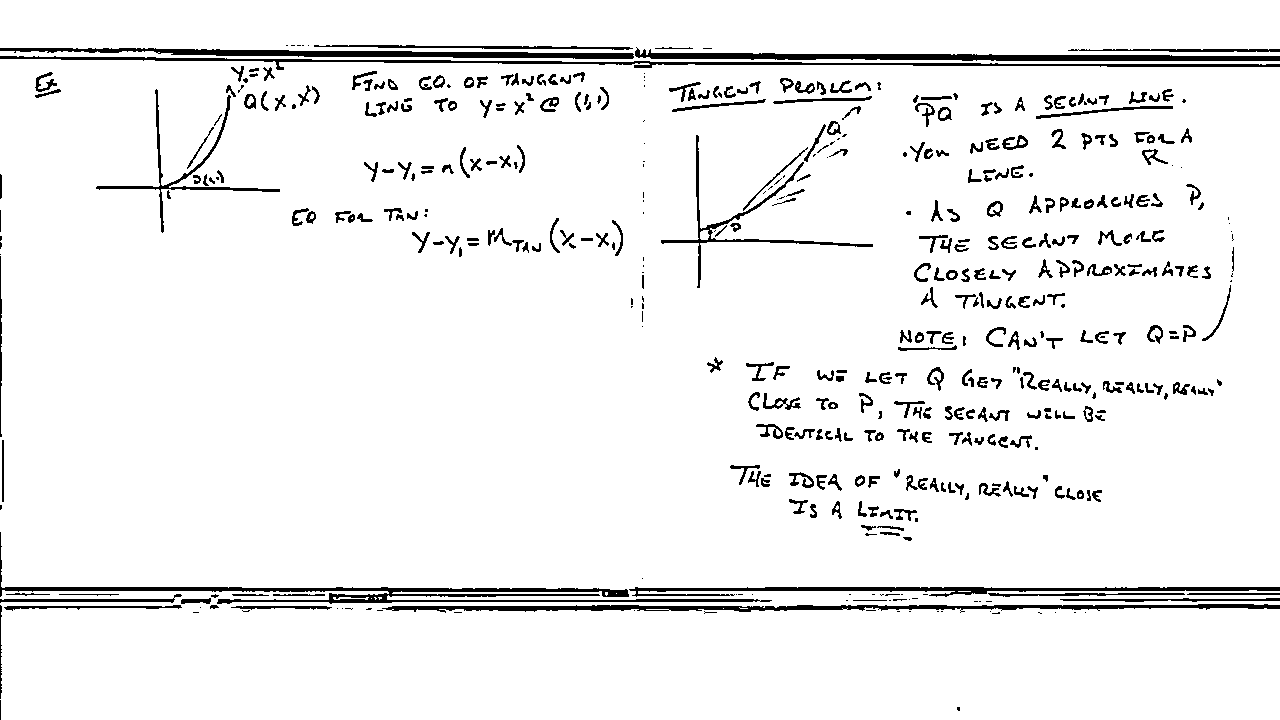 Ex
Y=X²
Q(X,X²)
P(1,1)
1
FIND EQ. OF TANGENT
LINE TO Y=X² @ (1,1)
Y-Y₁=m(X-X₁)
EQ FOR TAN:
Y-Y₁=m_TAN(X-X₁)
TANGENT PROBLEM:
Q
P
"PQ" IS A SECANT LINE.
•YOU NEED 2 PTS FOR A
LINE.
• AS Q APPROACHES P,
THE SECANT MORE
CLOSELY APPROXIMATES
A TANGENT.
NOTE: CAN'T LET Q=P
* IF WE LET Q GET "REALLY, REALLY, REALLY"
CLOSE TO P, THE SECANT WILL BE
IDENTICAL TO THE TANGENT.
THE IDEA OF "REALLY, REALLY" CLOSE
IS A LIMIT.